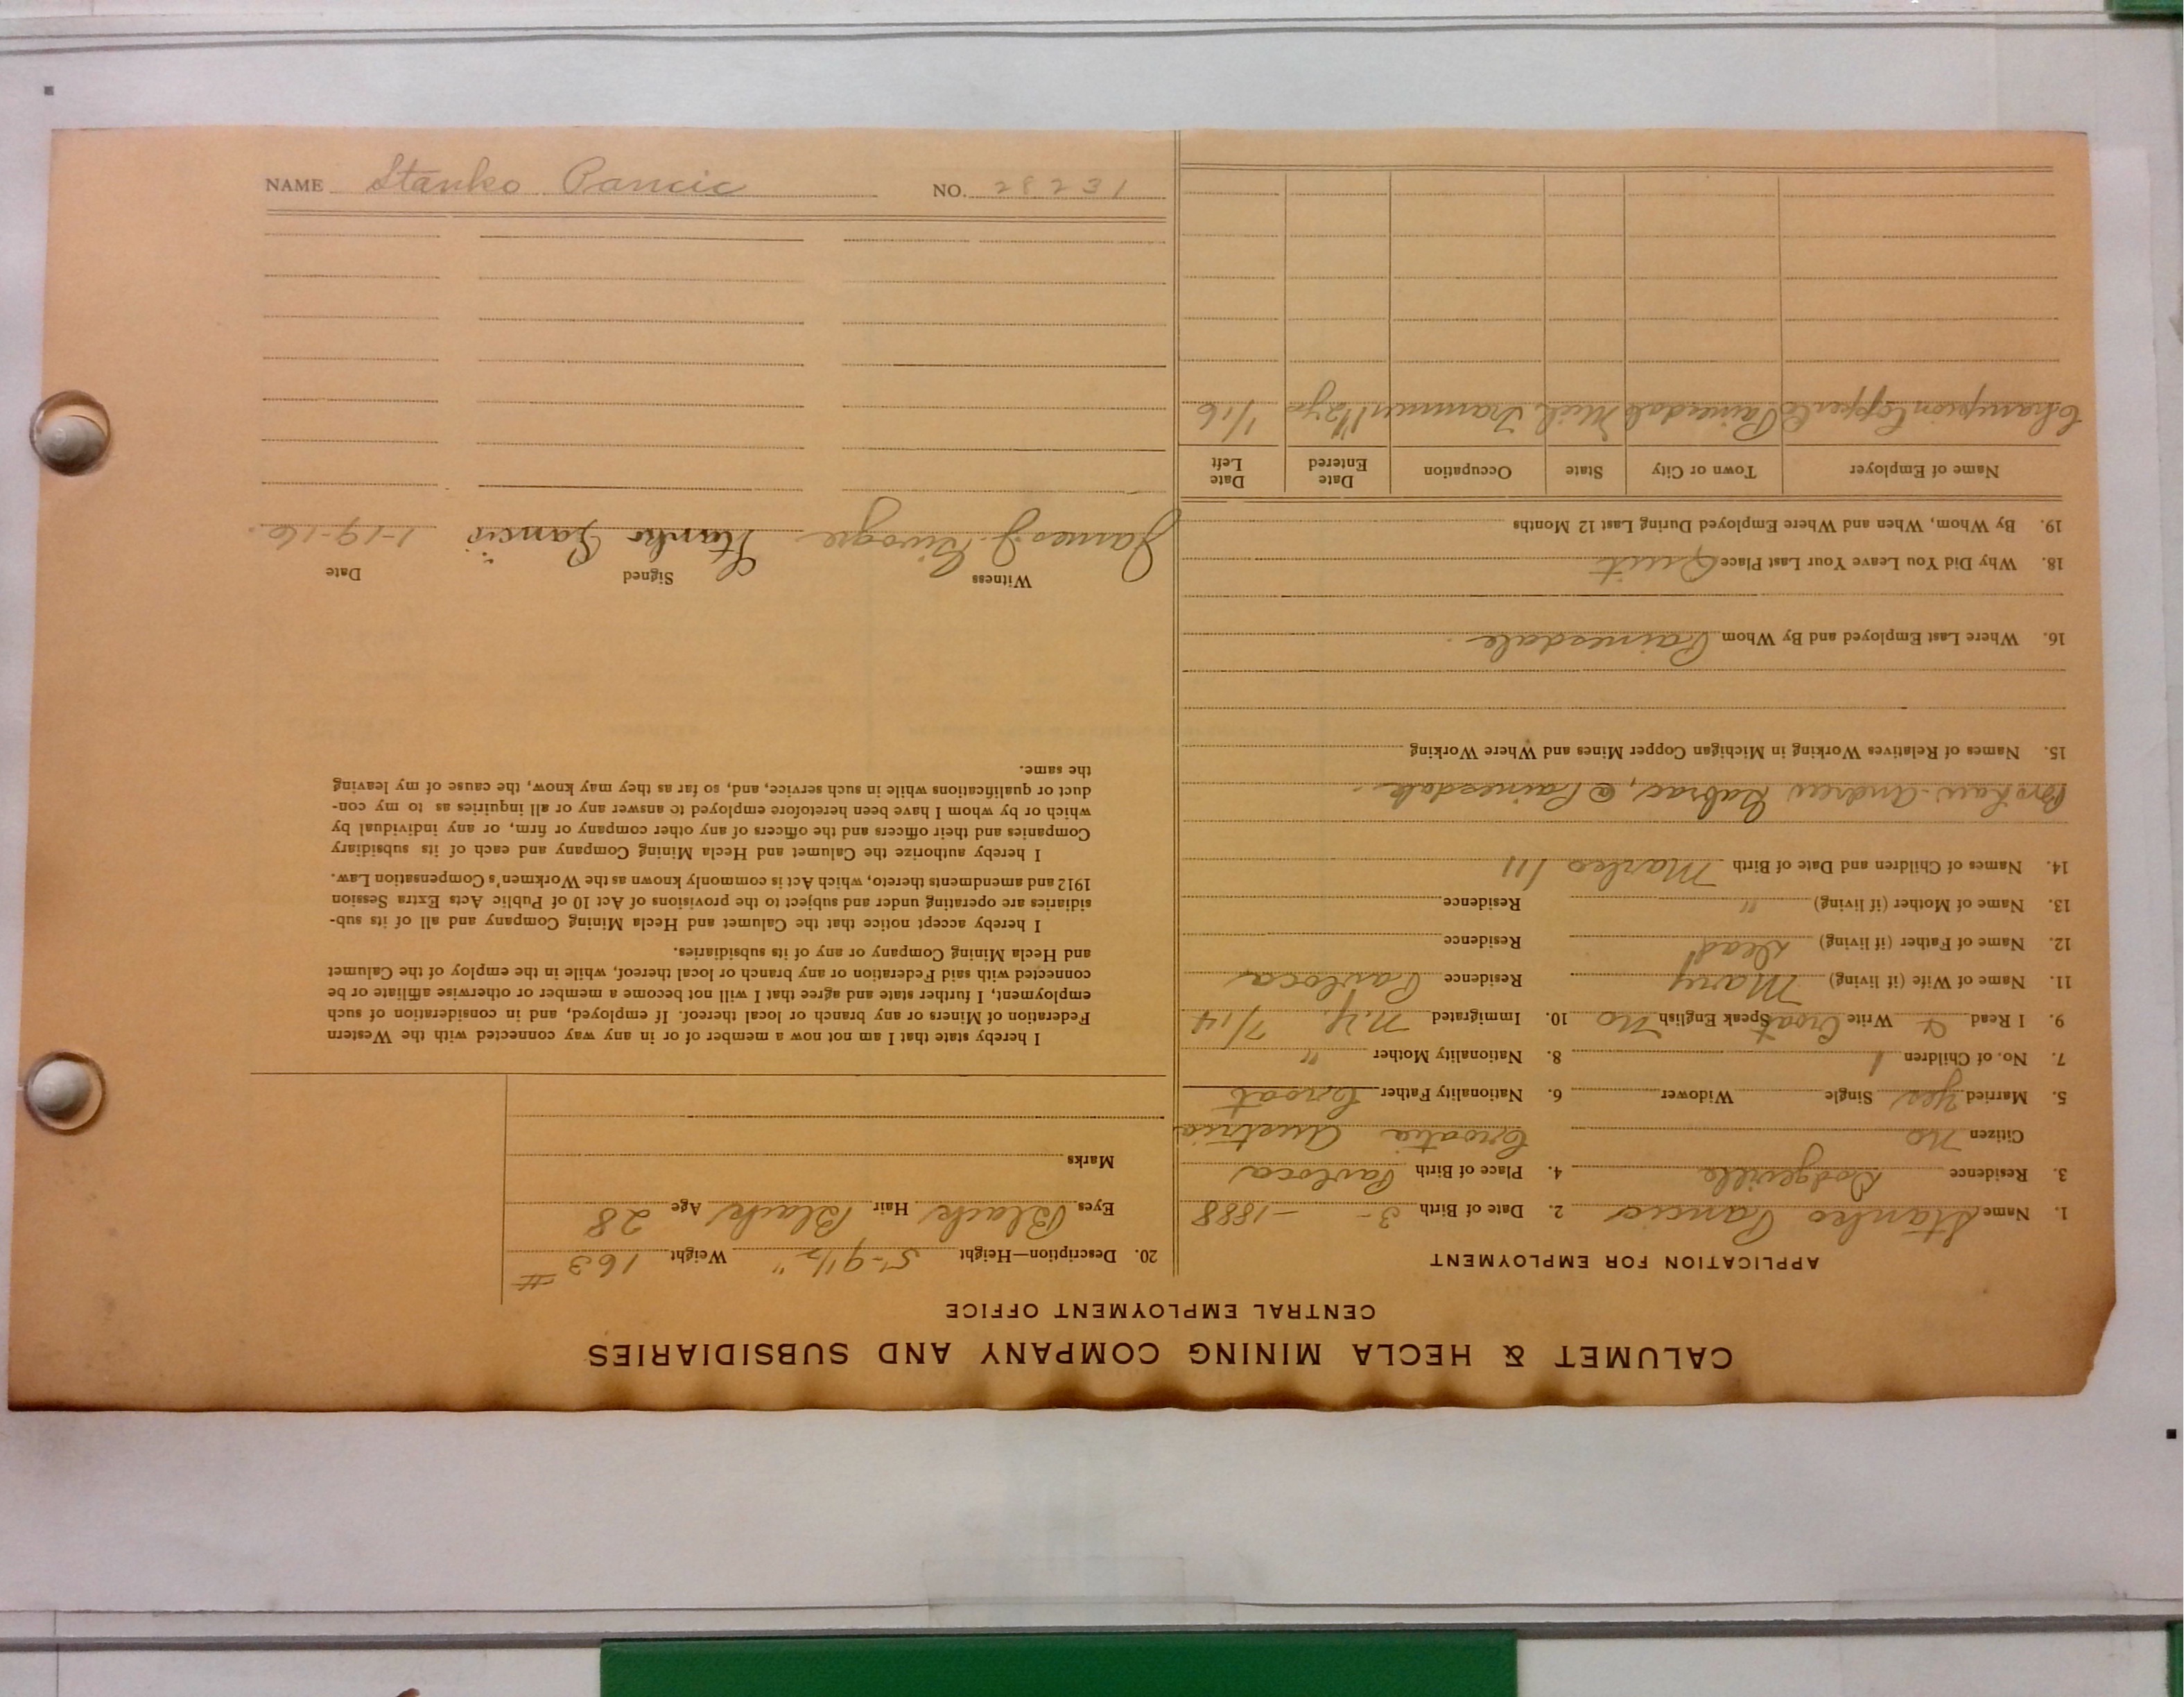 CALUMET & HECLA MINING COMPANY AND SUBSIDIARIES
CENTRAL EMPLOYMENT OFFICE
APPLICATION FOR EMPLOYMENT
1. Name Stanko Pancic 2. Date of Birth 3 - - 1888
3. Residence Dodgeville 4. Place of Birth Pavloca
Citizen no Croatia Austria
5. Married yes Single Widower 6. Nationality Father Croat
7. No. of Children 1 8. Nationality Mother "
9. I Read & Write Croat Speak English no 10. Immigrated N.Y. 7/14
11. Name of Wife (if living) Mary Residence Pavloca
12. Name of Father (if living) Dead Residence
13. Name of Mother (if living) " Residence
14. Names of Children and Date of Birth Marko 1/11
Bro Law - Andrew Gabrac, @ Painesdale.
15. Names of Relatives Working in Michigan Copper Mines and Where Working
16. Where Last Employed and By Whom Painesdale.
18. Why Did You Leave Your Last Place Quit
19. By Whom, When and Where Employed During Last 12 Months
Name of Employer Town or City State Occupation Date Entered Date Left
Champion Copper Co Painesdale Mich Trammer 1 1/2 yrs 1/16
20. Description—Height 5'-9 1/2" Weight 163 #
Eyes Black Hair Black Age 28
Marks
I hereby state that I am not now a member of or in any way connected with the Western
Federation of Miners or any branch or local thereof. If employed, and in consideration of such
employment, I further state and agree that I will not become a member or otherwise affiliate or be
connected with said Federation or any branch or local thereof, while in the employ of the Calumet
and Hecla Mining Company or any of its subsidiaries.
I hereby accept notice that the Calumet and Hecla Mining Company and all of its sub-
sidiaries are operating under and subject to the provisions of Act 10 of Public Acts Extra Session
1912 and amendments thereto, which Act is commonly known as the Workmen's Compensation Law.
I hereby authorize the Calumet and Hecla Mining Company and each of its subsidiary
Companies and their officers and the officers of any other company or firm, or any individual by
which or by whom I have been heretofore employed to answer any or all inquiries as to my con-
duct or qualifications while in such service, and, so far as they may know, the cause of my leaving
the same.
Witness Signed Date
James J. Stanko Pancic 1-19-16.
NAME Stanko Pancic NO. 28231